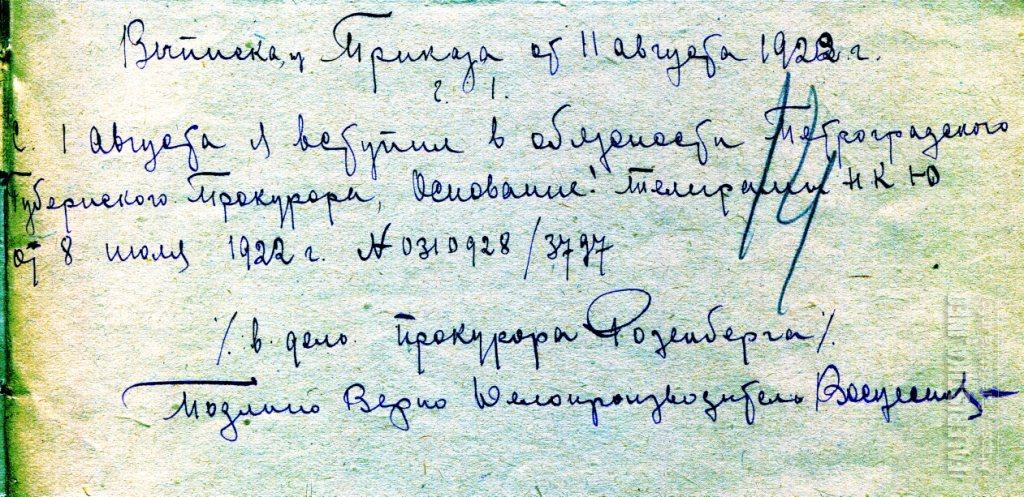 Выписка, Приказа от 11 августа 1922 г.
г. 1.
С. 1 августа я вступил в обязаности Петроградского
Губернского Прокурора, Основание: телеграмма НКЮ
от 8 июля 1922 г. № 0310928/3797
14
/. в дело прокурора Розенберга /.
Верно Делопроизводитель